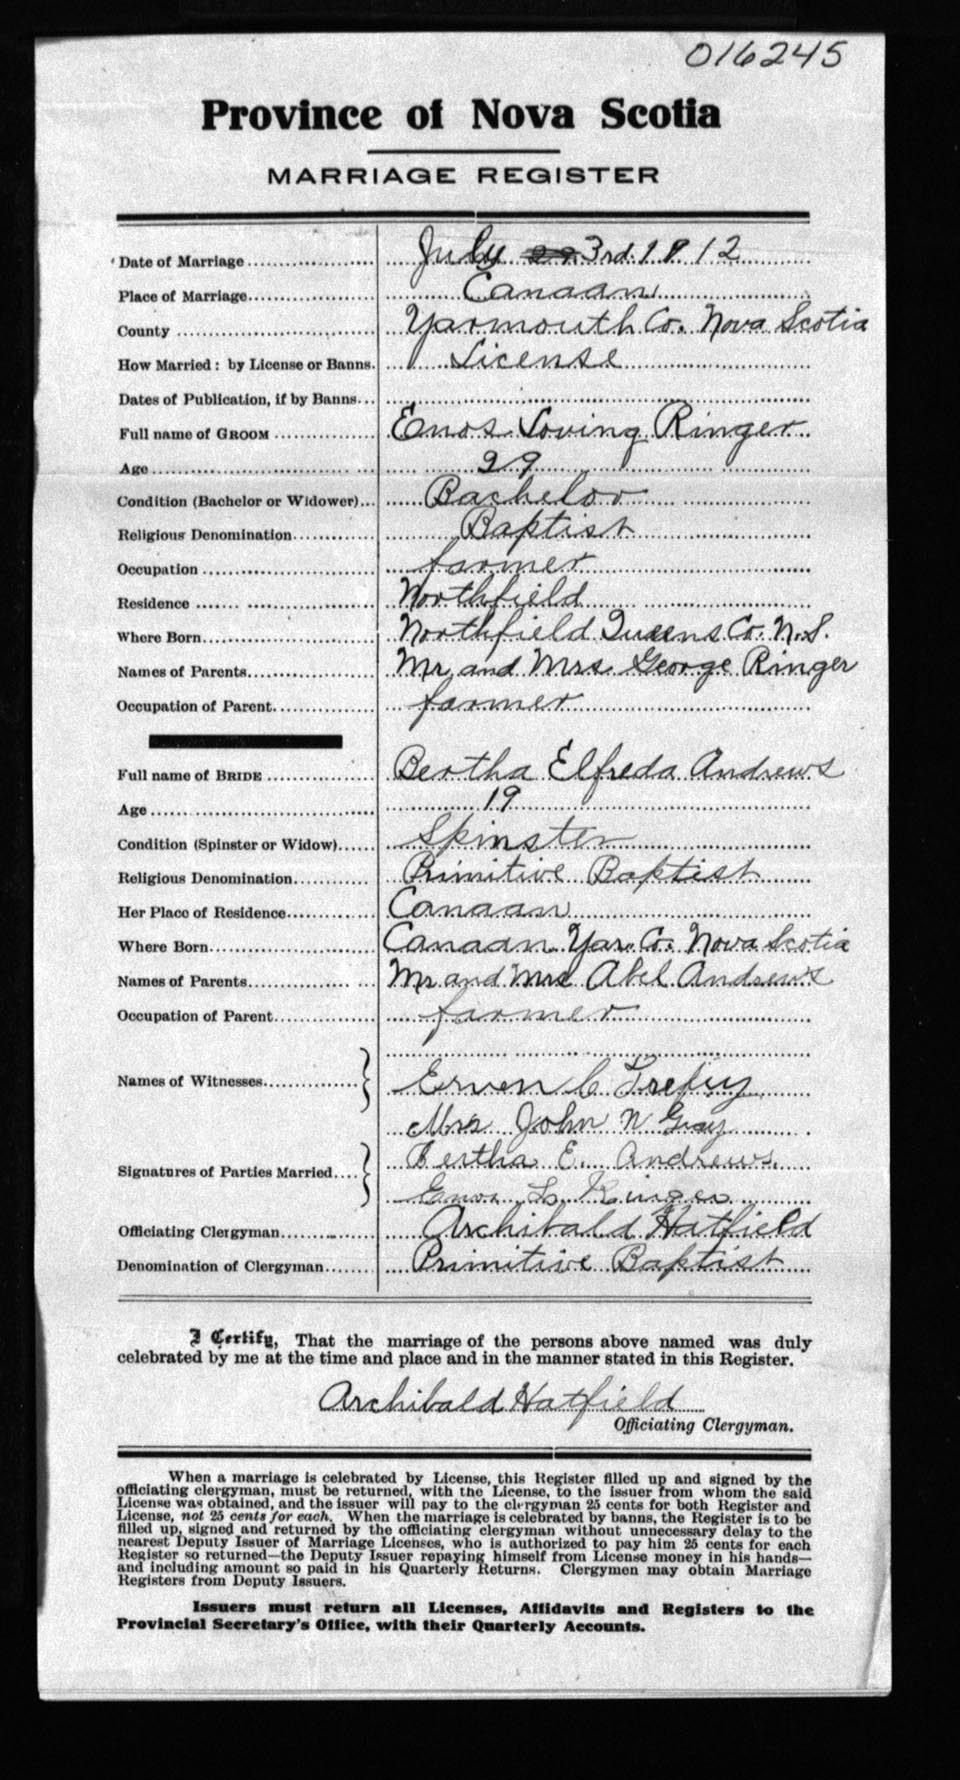 016245
Province of Nova Scotia
MARRIAGE REGISTER
Date of Marriage July 3rd. 1912
Place of Marriage Canaan
County Yarmouth Co. Nova Scotia
How Married: by License or Banns. License
Dates of Publication, if by Banns
Full name of GROOM Enos Loving Ringer
Age 29
Condition (Bachelor or Widower) Bachelor
Religious Denomination Baptist
Occupation farmer
Residence Northfield
Where Born Northfield Queens Co. N.S.
Names of Parents Mr and Mrs George Ringer
Occupation of Parent farmer
Full name of BRIDE Bertha Elfreda Andrews
Age 19
Condition (Spinster or Widow) Spinster
Religious Denomination Primitive Baptist
Her Place of Residence Canaan
Where Born Canaan Yar. Co. Nova Scotia
Names of Parents Mr and Mrs Abel Andrews
Occupation of Parent farmer
Names of Witnesses Erven C Trefry
Mrs John N Gray
Signatures of Parties Married Bertha E. Andrews
Enos L. Ringer
Officiating Clergyman Archibald Hatfield
Denomination of Clergyman Primitive Baptist
I Certify, That the marriage of the persons above named was duly
celebrated by me at the time and place and in the manner stated in this Register.
Archibald Hatfield
Officiating Clergyman.
When a marriage is celebrated by License, this Register filled up and signed by the
officiating clergyman, must be returned, with the License, to the issuer from whom the said
License was obtained, and the issuer will pay to the clergyman 25 cents for both Register and
License, not 25 cents for each. When the marriage is celebrated by banns, the Register is to be
filled up, signed and returned by the officiating clergyman without unnecessary delay to the
nearest Deputy Issuer of Marriage Licenses, who is authorized to pay him 25 cents for each
Register so returned—the Deputy Issuer repaying himself from License money in his hands—
and including amount so paid in his Quarterly Returns. Clergymen may obtain Marriage
Registers from Deputy Issuers.
Issuers must return all Licenses, Affidavits and Registers to the
Provincial Secretary's Office, with their Quarterly Accounts.